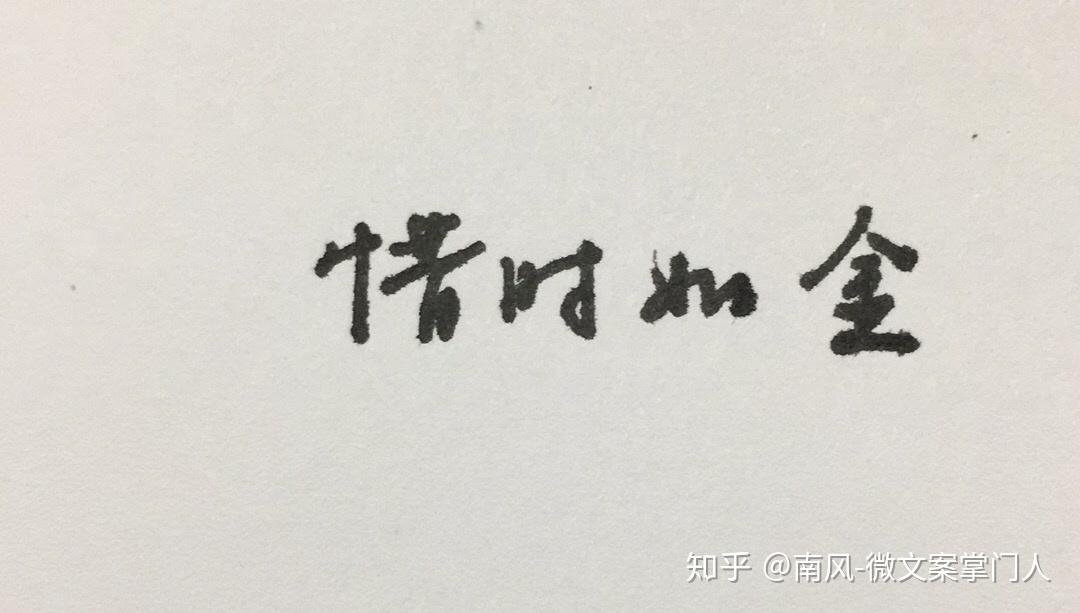 惜时如金
知乎 @南风-微文案掌门人